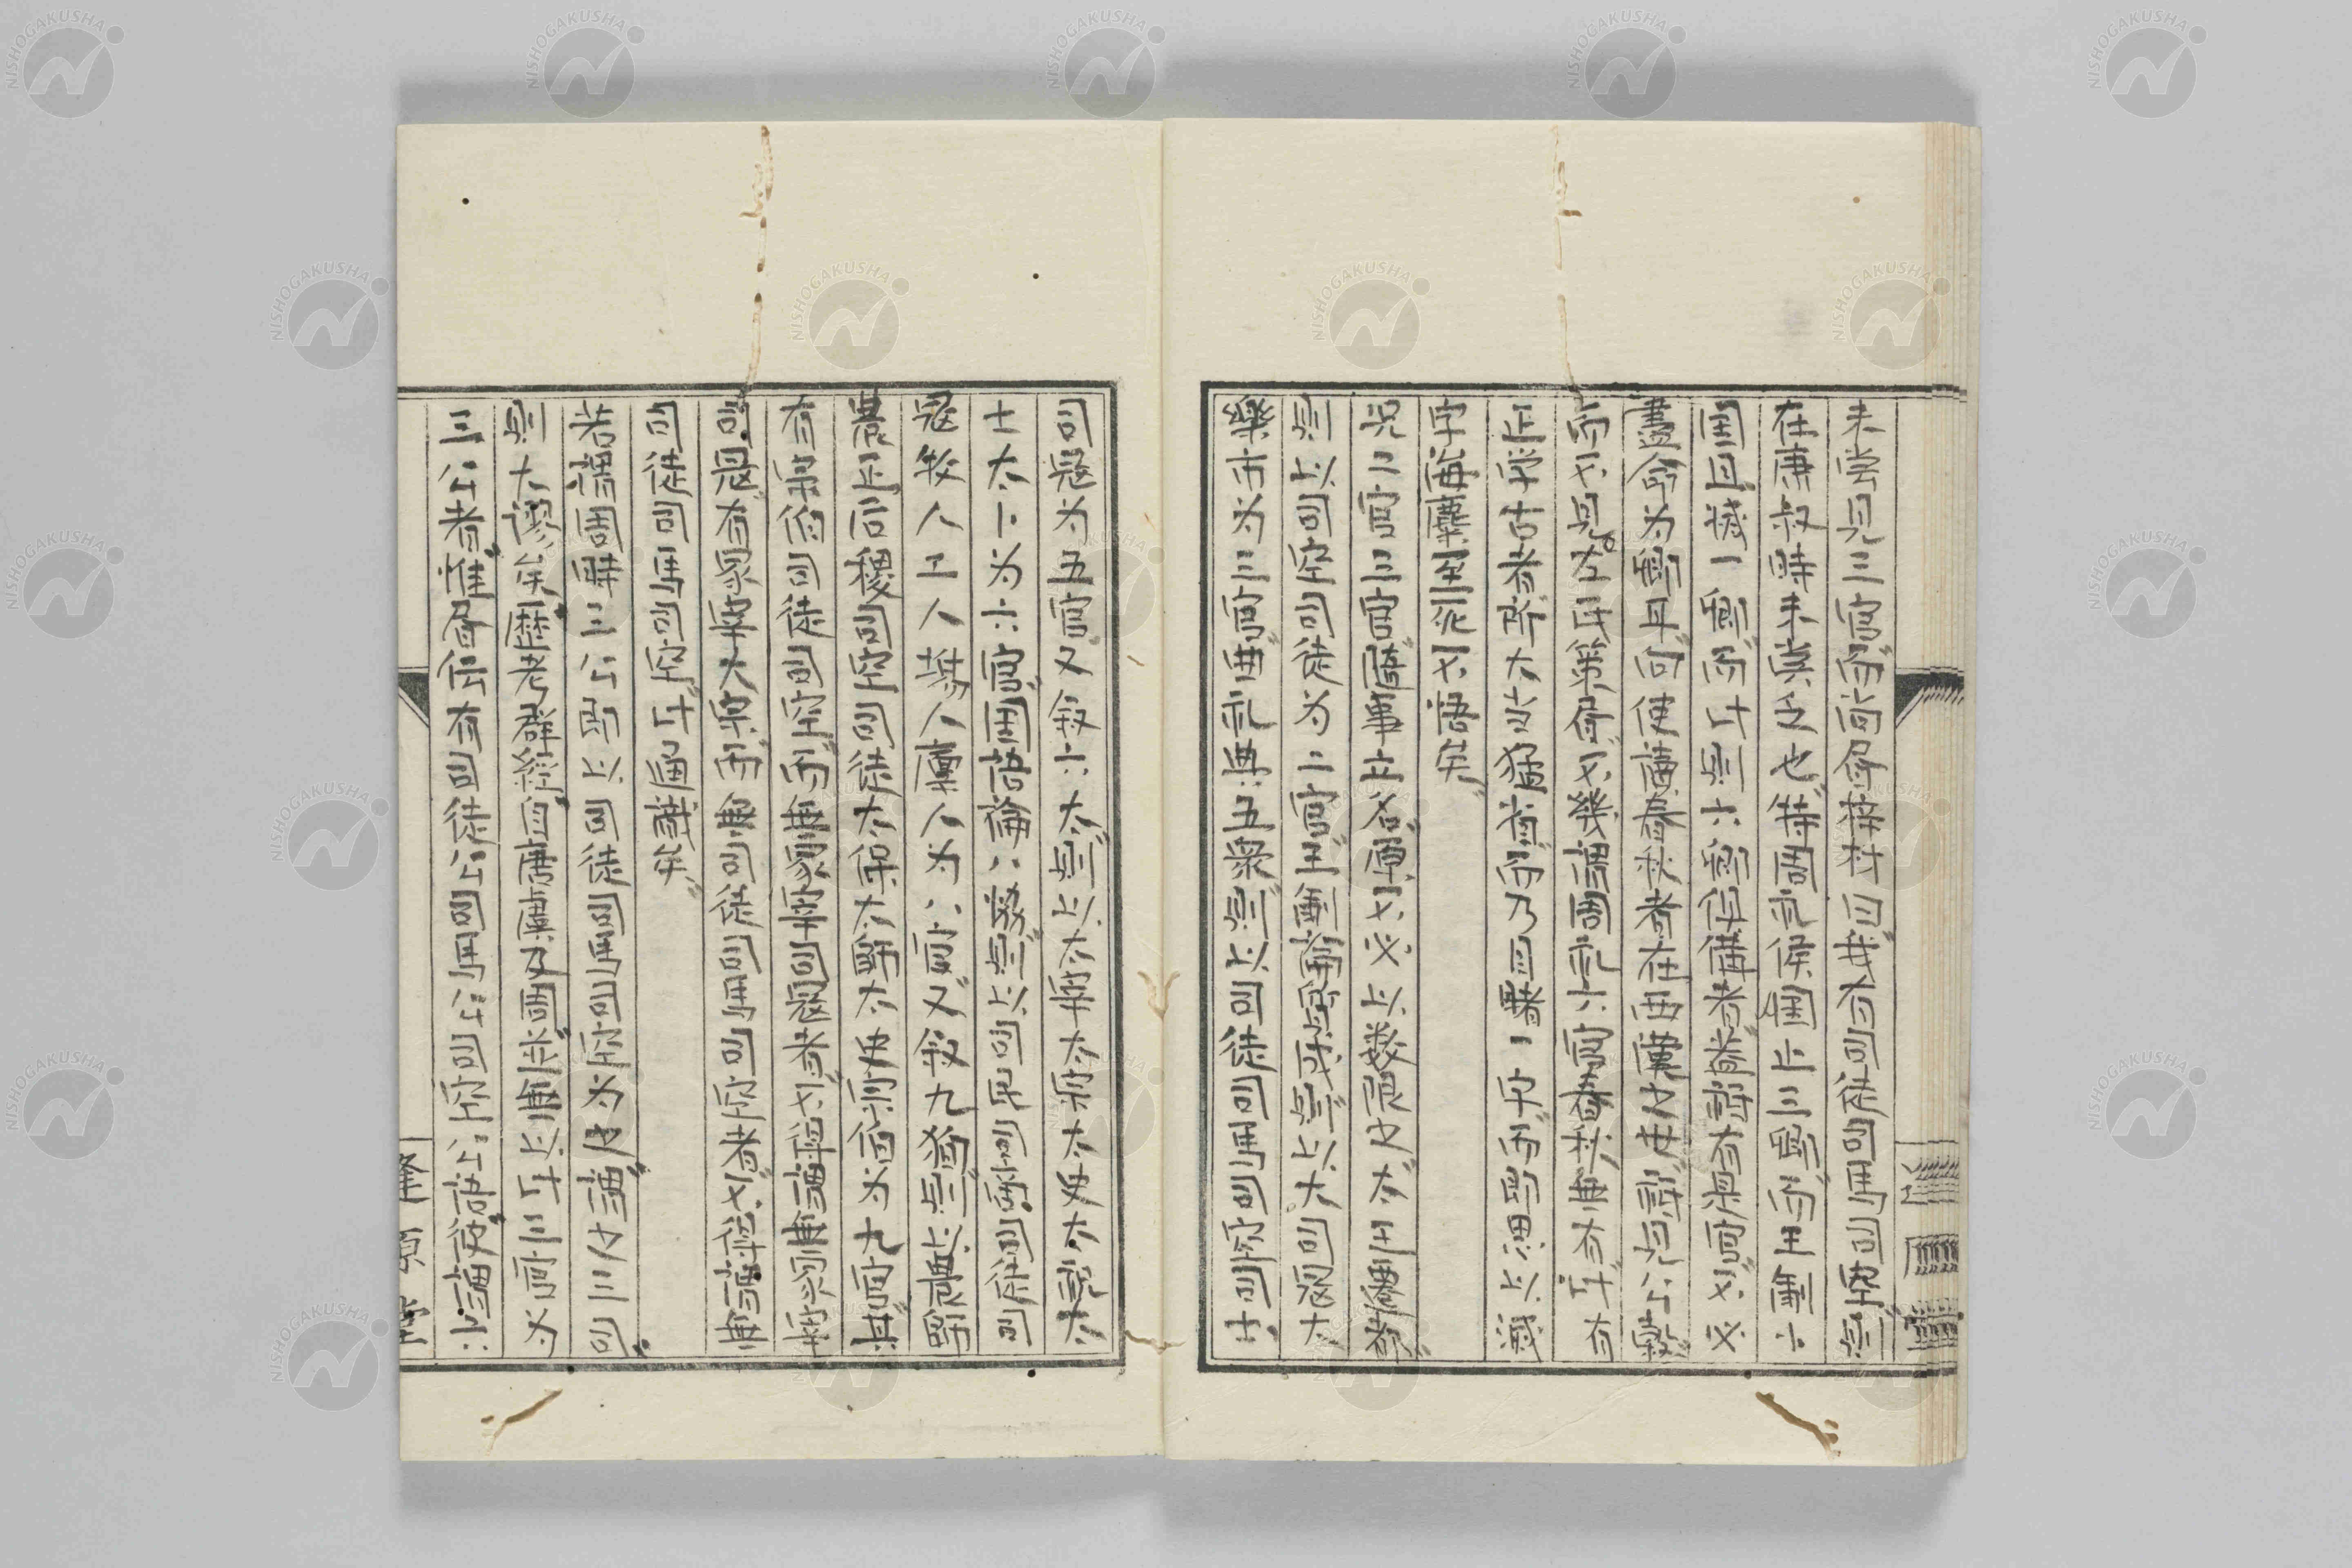 未嘗見三官而尚得辨材曰我有司徒司馬司空則
在唐叔時未嘗乏也特周礼侯国止三卿而王制小
国且減一卿而此則六卿俱備者蓋謂有是官不必
盡命為卿耳向使讀春秋者在西漢之世謂見公穀
而不見左氏策得不幾謂周礼六官春秋無有此有
正學古者所大當猛省而乃曰翳一字而即思以滅
字海麋至死不悟矣
況二官三官随事立名原不必以数限之大王遷都
則以司空司徒為二官王制論家宰則以大司寇大
樂市為三官曲礼典五衆則以司徒司馬司空司士
司寇為五官又叙六大則以大宰大宗大史大祝大
士大卜為六官国語論八数則以司民司商司徒司
寇牧人工人場人廩人為八官又叙九獨則以農師
農正后稷司空司徒太保太師太史宗伯為九官其
有宗伯司徒司空而無冢宰司寇者不得謂無冢宰
司寇有冢宰大宗而無司徒司馬司空者不得謂無
司徒司馬司空此通識矣
若謂周時三公即以司徒司馬司空為之謂之三司
則大謬矣歴考群経自唐虞及周並無以此三官為
三公者惟伝有司徒公司馬公司空公語後謂此